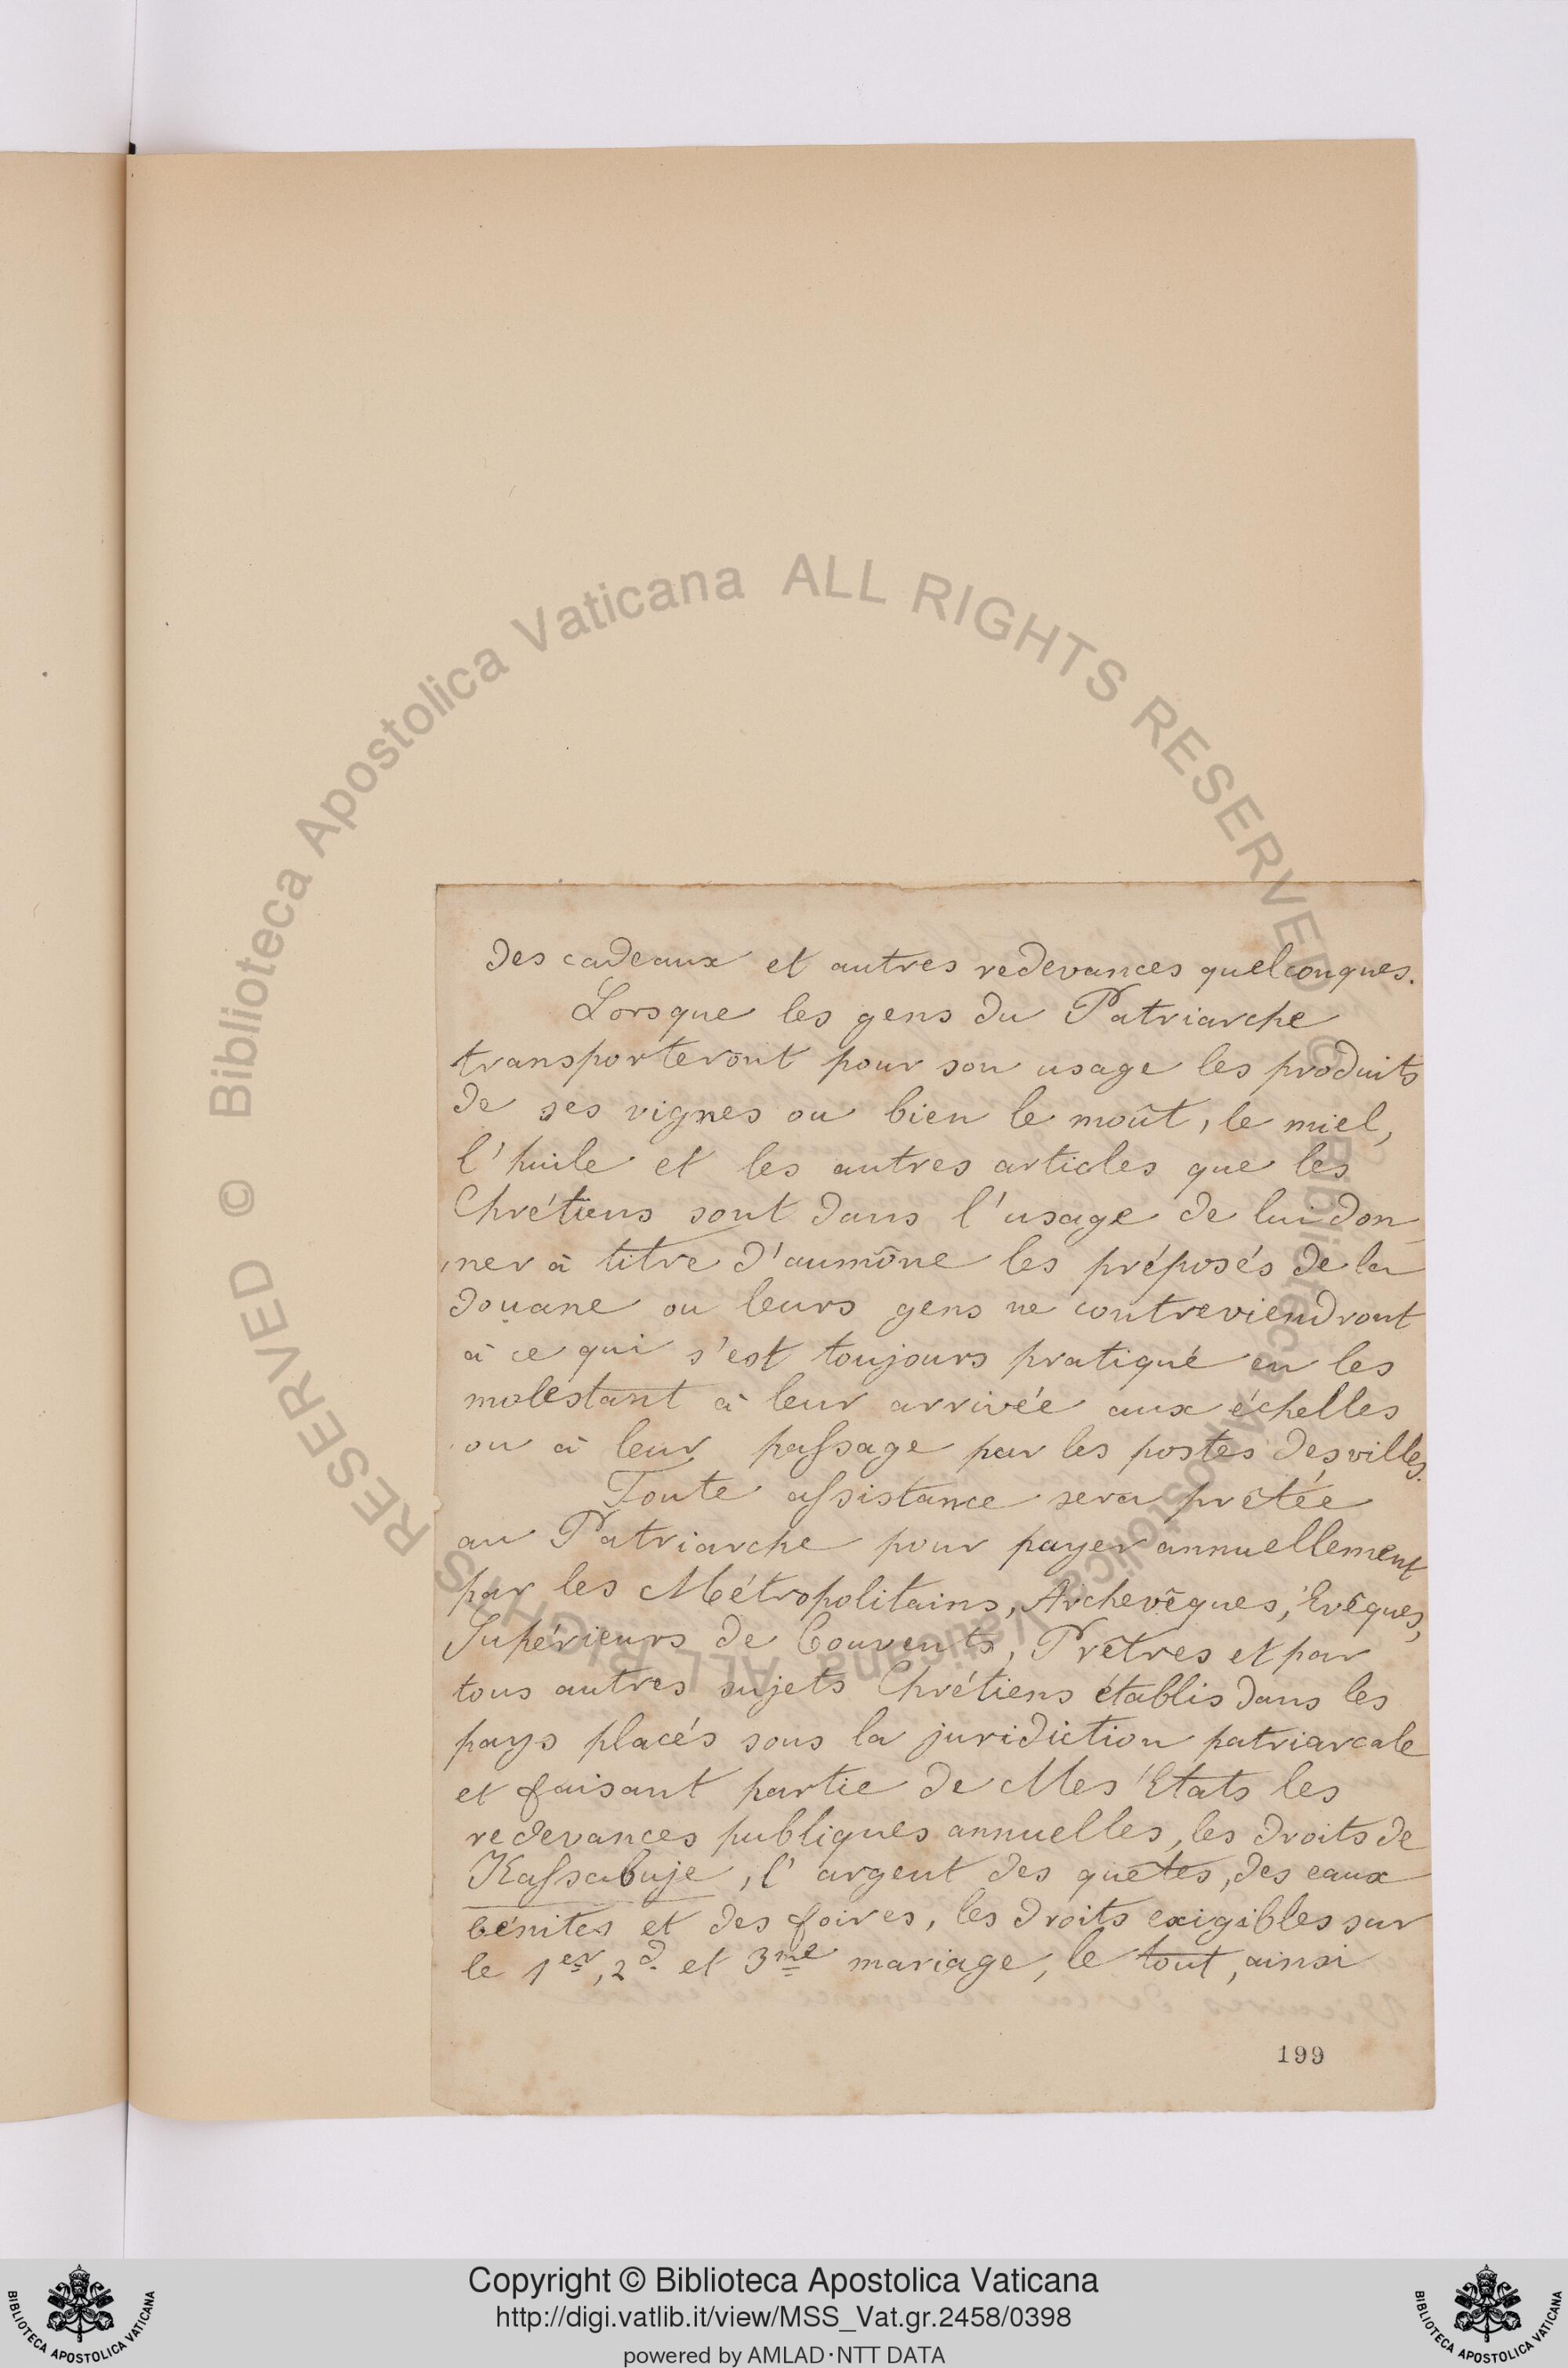 des cadeaux et autres redevances quelconques.
Lorsque les gens du Patriarche
transporteront pour son usage les produits
de ses vignes ou bien le moût, le miel,
l'huile et les autres articles que les
Chrétiens sont dans l'usage de lui don
ner à titre d'aumône les préposés de la
douane ou leurs gens ne contreviendront
à ce qui s'est toujours pratiqué en les
molestant à leur arrivée aux échelles
ou à leur passage par les postes des villes.
Toute assistance sera prêtée
au Patriarche pour payer annuellement
par les Métropolitains, Archevêques, Evêques,
Supérieurs de Couvents, Prêtres et par
tous autres sujets Chrétiens établis dans les
pays placés sous la juridiction patriarcale
et faisant partie de Mes Etats les
redevances publiques annuelles, les droits de
Kassabuje, l'argent des quêtes, des eaux
bénites et des foires, les droits exigibles sur
le 1er, 2d et 3me mariage, le tout, ainsi
199
© Biblioteca Apostolica Vaticana ALL RIGHTS RESERVED
© Biblioteca Apostolica Vaticana ALL RIGHTS RESERVED
Copyright © Biblioteca Apostolica Vaticana
http://digi.vatlib.it/view/MSS_Vat.gr.2458/0398
powered by AMLAD·NTT DATA
BIBLIOTECA APOSTOLICA VATICANA
BIBLIOTECA APOSTOLICA VATICANA